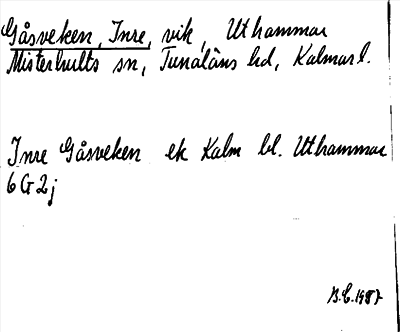 Gåsveken, Inre, vik, Uthammar
Misterhults sn, Tunaläns hd, Kalmar l.
Inre Gåsveken ek Kalm bl. Uthammar
6G2j
B.C.1987